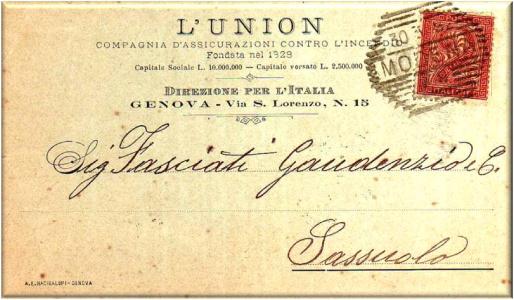 L'UNION
COMPAGNIA D'ASSICURAZIONI CONTRO L'INCENDIO
Fondata nel 1828
Capitale Sociale L. 10.000.000 — Capitale versato L. 2.500.000
DIREZIONE PER L'ITALIA
GENOVA - Via S. Lorenzo, N. 15
30
MO
Sig Fasciati Gaudenzio e C.
Sassuolo
GENOVA